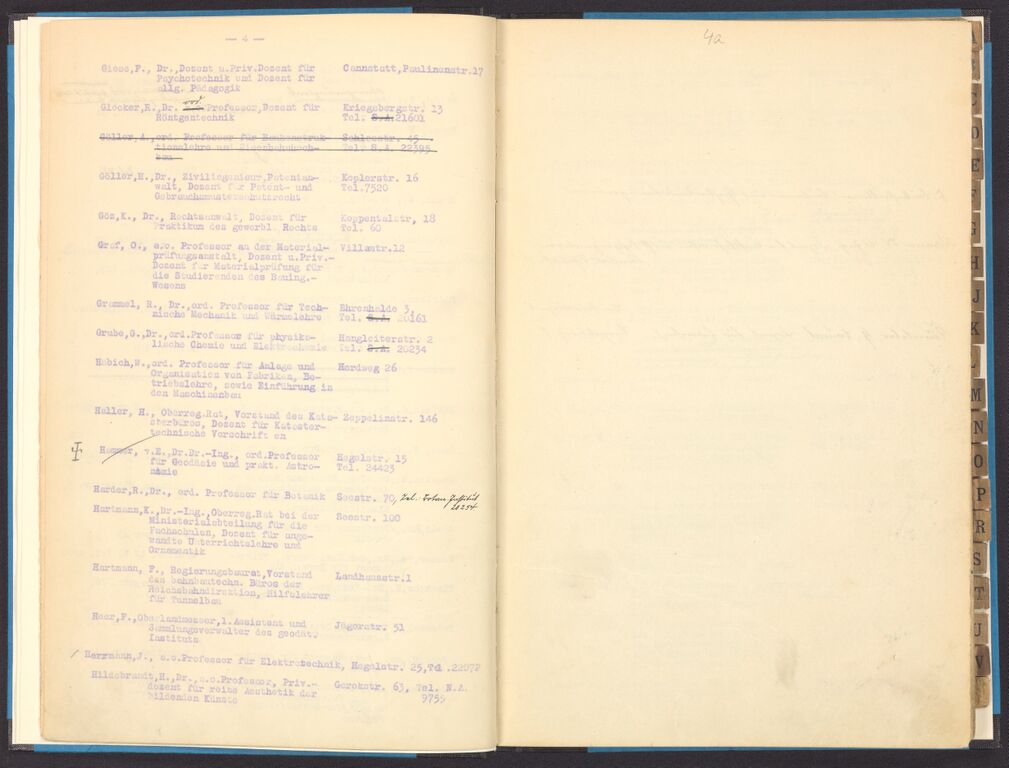 — 4 —
Giese,F., Dr.,Dozent u.Priv.Dozent für Cannstatt,Paulinenstr.17
Psychotechnik und Dozent für
allg. Pädagogik
ord.
Glocker,R.,Dr. Professor,Dozent für Kriegsbergstr. 13
Röntgentechnik Tel. S.A.21601
Göller,A.,ord. Professor für Baukonstruk- Schlosstr. 45
tionslehre und Eisenbahnhoch- Tel. S.A. 22395
bau
Göller,H.,Dr., Zivilingenieur,Patentan- Keplerstr. 16
walt, Dozent für Patent- und Tel.7520
Gebrauchsmusterschutzrecht
Göz,K., Dr., Rechtsanwalt, Dozent für Koppentalstr, 18
Praktikum des gewerbl. Rechts Tel. 60
Graf, O., a.o. Professor an der Material- Villastr.12
prüfungsanstalt, Dozent u.Priv.-
Dozent für Materialprüfung für
die Studierenden des Bauing.-
Wesens
Grammel, R., Dr.,ord. Professor für Tech- Ehrenhalde 3,
nische Mechanik und Wärmelehre Tel. S.A. 20161
Grube,G.,Dr.,ord.Professor für physika- Hangleiterstr. 2
lische Chemie und Elektrochemie Tel. S.A. 20234
Häbich,W.,ord. Professor für Anlage und Herdweg 26
Organisation von Fabriken, Be-
triebslehre, sowie Einführung in
den Maschinenbau
Haller, H., Oberreg.Rat, Vorstand des Kata- Zeppelinstr. 146
sterbüros, Dozent für Kataster-
technische Vorschriften
Hammer, v.E.,Dr.Dr.-Ing., ord.Professor Hegelstr. 15
für Geodäsie und prakt. Astro- Tel. 24423
nomie
Harder,R.,Dr., ord. Professor für Botanik Seestr. 70, Tel. Botan. Institut
20254
Hartmann,K.,Dr.-Ing.,Oberreg.Rat bei der Seestr. 100
Ministerialabteilung für die
Fachschulen, Dozent für ange-
wandte Unterrichtslehre und
Ornamentik
Hartmann, F., Regierungsbaurat,Vorstand Landhausstr.1
des bahnbautechn. Büros der
Reichsbahndirektion, Hilfslehrer
für Tunnelbau
Heer,F.,Oberlandmesser,1.Assistent und Jägerstr. 51
Sammlungsverwalter des geodät.
Instituts
Herrmann,J., a.o.Professor für Elektrotechnik, Hegelstr. 25,Tel.22072
Hildebrandt,H.,Dr.,a.o.Professor, Priv.- Gerokstr. 63, Tel. N.A.
dozent für reine Aesthetik der 9755
bildenden Künste
4a
A
B
C
D
E
F
G
H
J
K
L
M
N
O
P
R
S
T
U
V